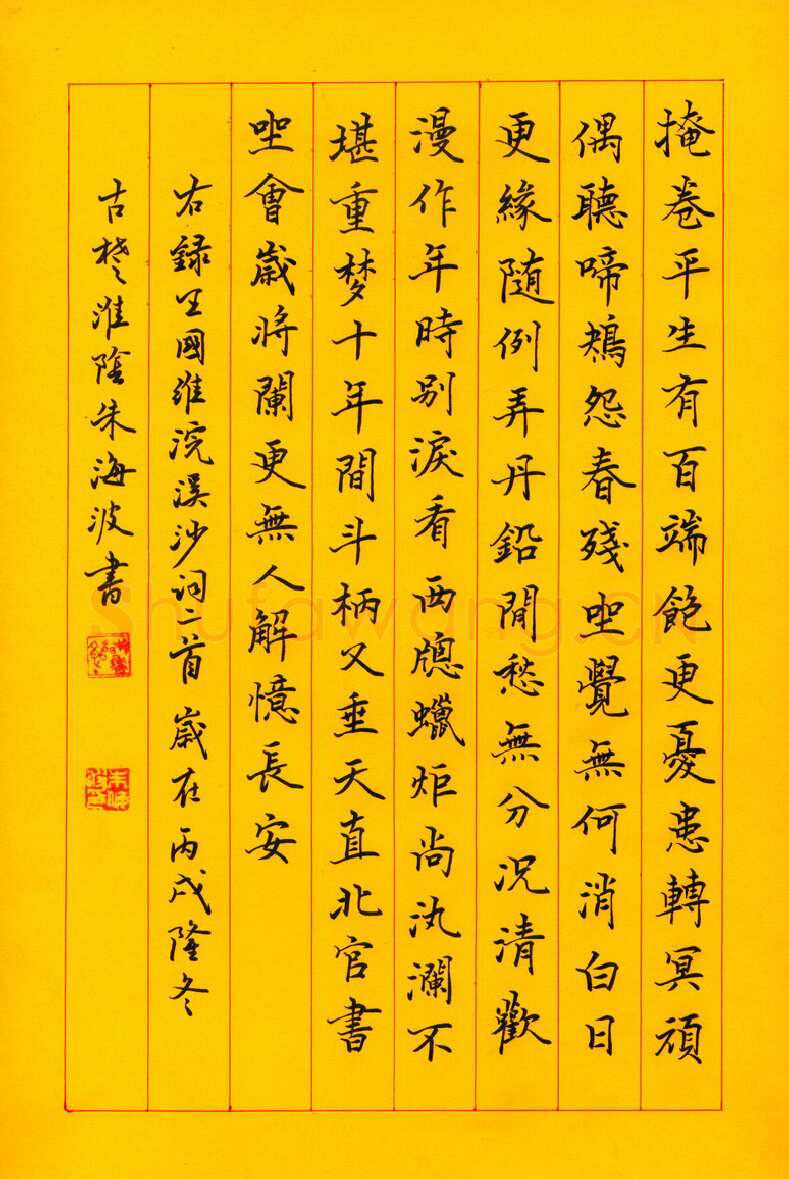 掩卷平生有百端飽更憂患轉冥頑
偶聽啼鴂怨春殘坐覺無何消白日
更緣隨例弄丹鉛閒愁無分況清歡
漫作年時別淚看西窗蠟炬尚汍瀾不
堪重夢十年間斗柄又垂天直北官書
坐會歲將闌更無人解憶長安
右錄王國維浣溪沙詞二首歲在丙戌隆冬
古楚淮陰朱海波書
Shufawang.CN